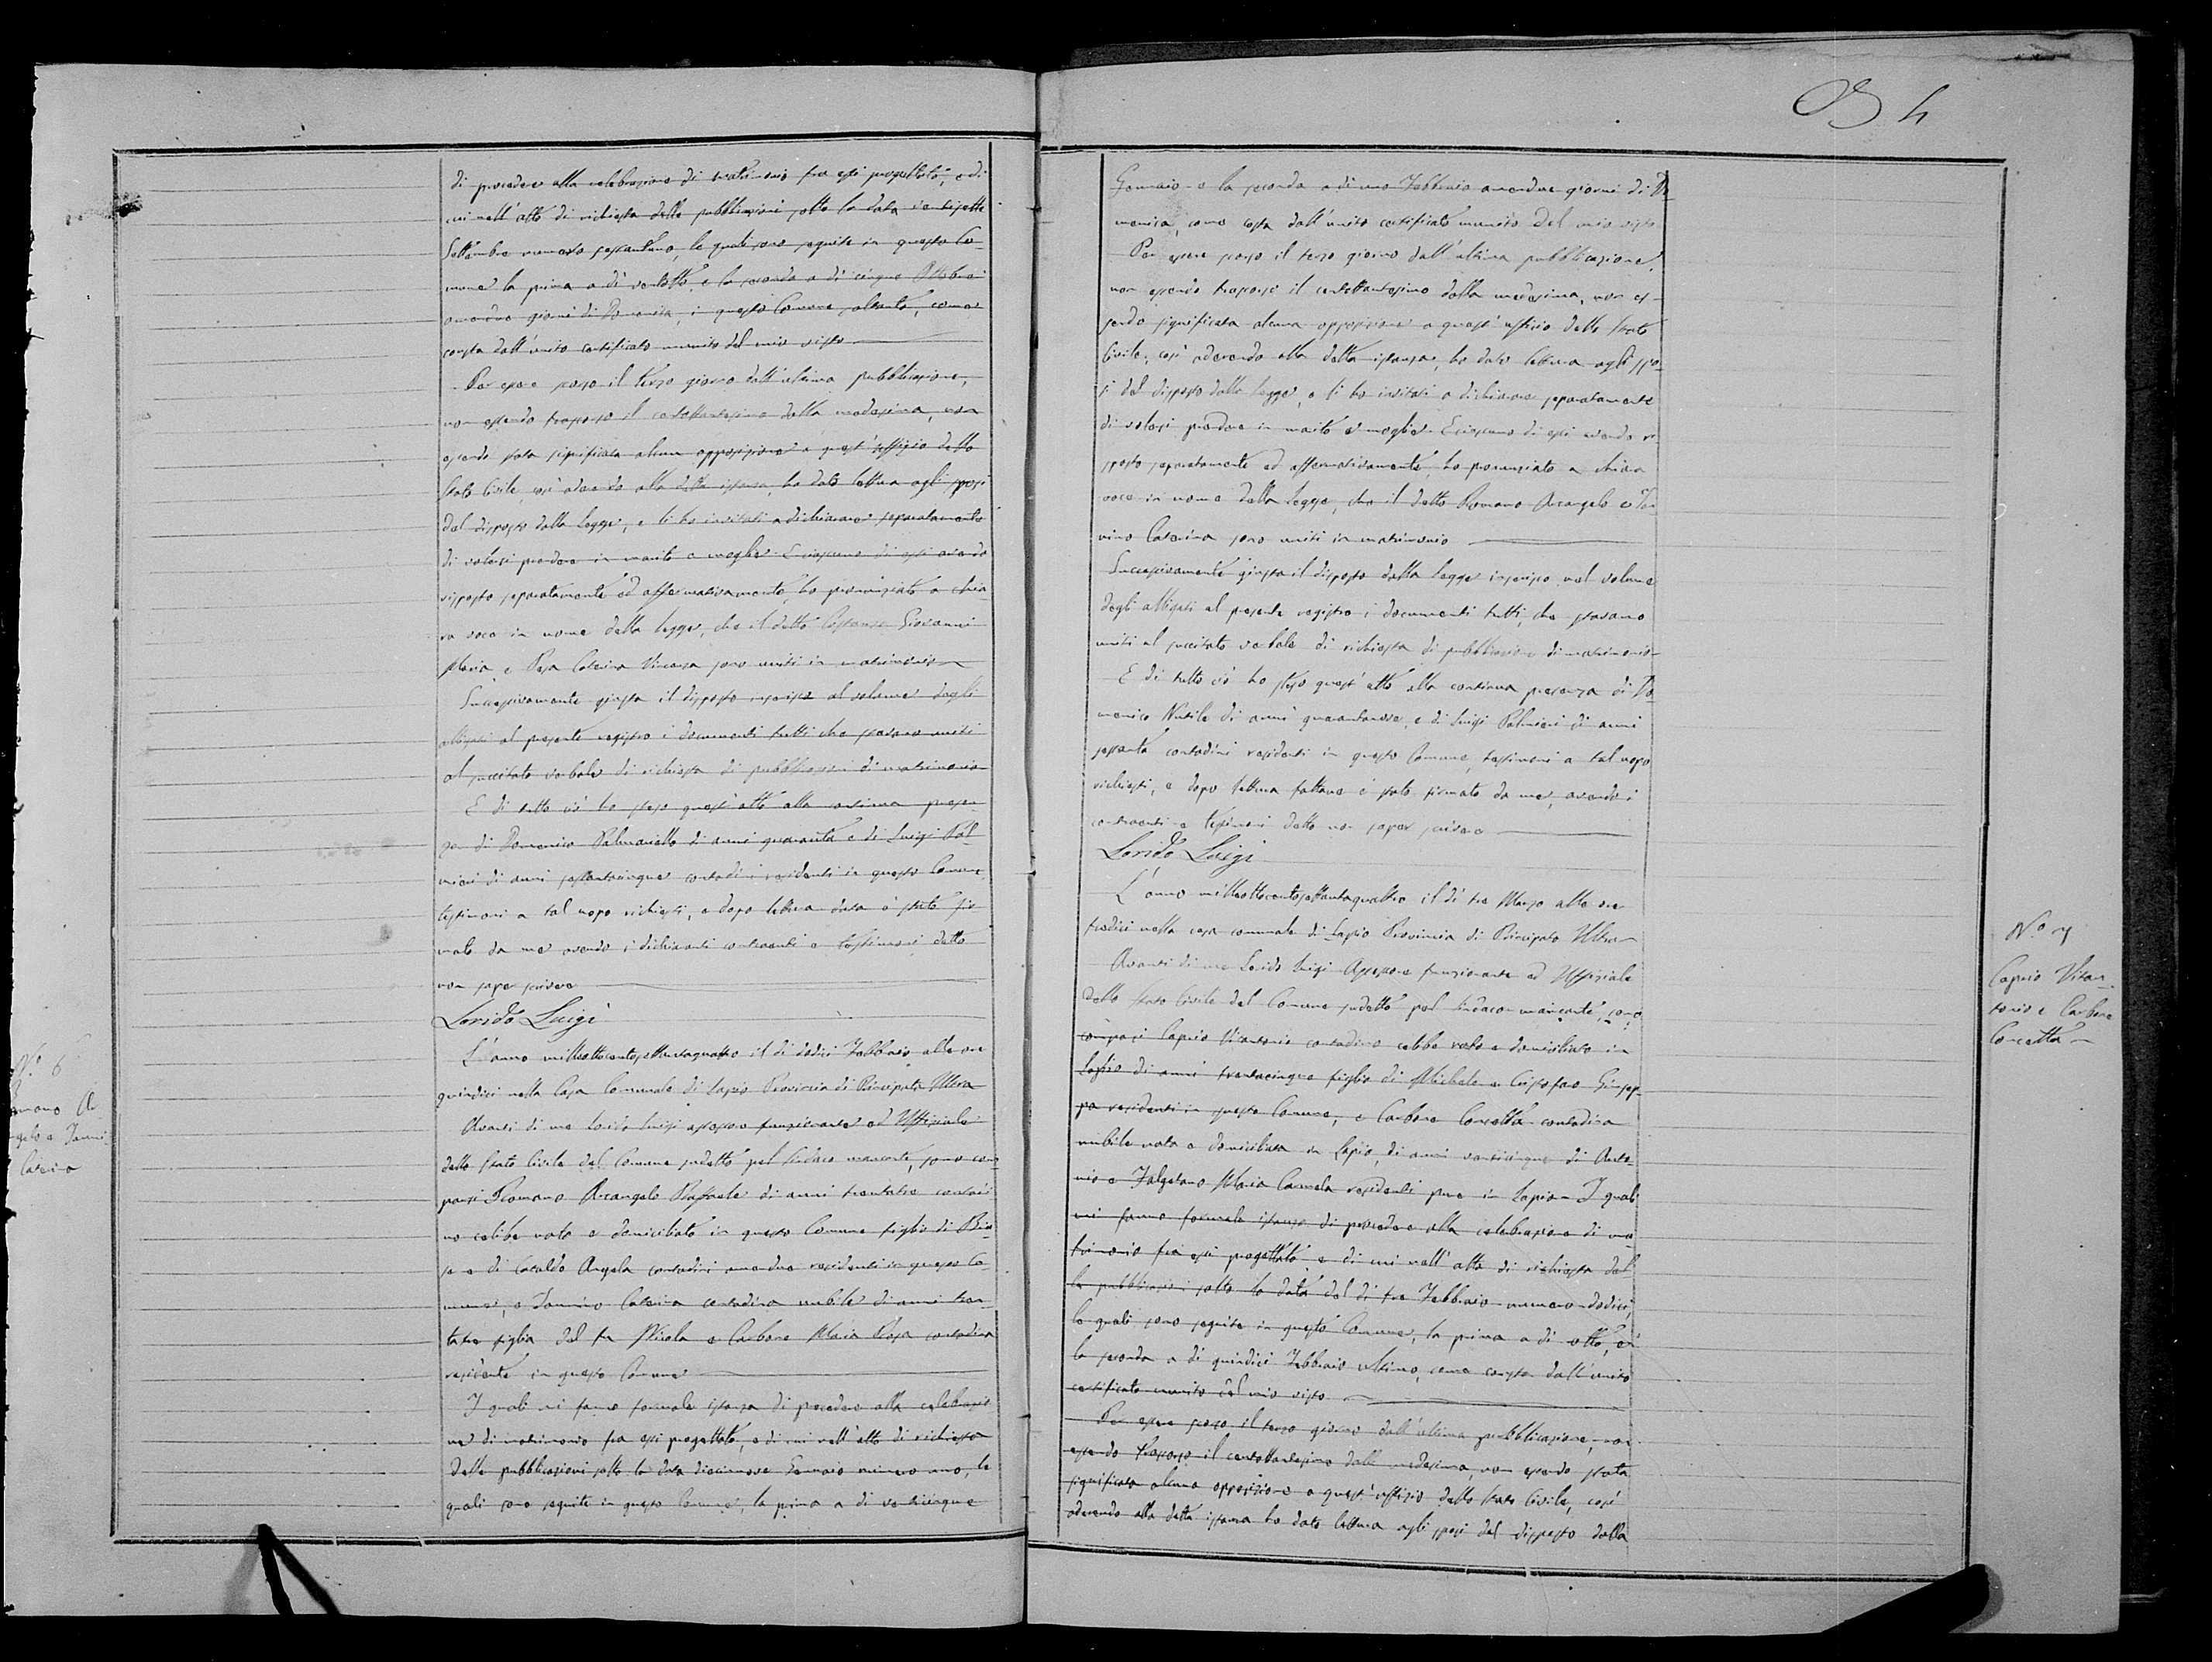 di procedere alla celebrazione di matrimonio fra essi progettato, e di
cui nell'atto di richiesta delle pubblicazioni sotto la data ventisette
Settembre numero sessantuno, le quali sono seguite in questo Co-
mune la prima a dì ventotto, e la seconda a dì cinque Ottobre
amendue giorni di Domenica, in questo Comune soltanto, come
consta dall'unito certificato munito del mio visto
Per essere scorso il terzo giorno dall'ultima pubblicazione,
non essendo trascorso il centottantesimo dalla medesima, non
essendo stata significata alcuna opposizione a quest'uffizio dello
Stato Civile, così aderendo alla detta istanza, ho dato lettura agli sposi
del disposto dalla legge, e li ho invitati a dichiarare separatamente
di volersi prendere in marito e moglie. E ciascuno di essi avendo
risposto separatamente ed affermativamente, ho pronunziato a chia-
ra voce in nome della legge, che il detto Costanzo Giovanni
Maria, e Pesa Caterina Vincenza sono uniti in matrimonio
Successivamente giusta il disposto inserisco al volume degli
allegati al presente registro i documenti tutti che stavano uniti
al succitato verbale di richiesta di pubblicazioni di matrimonio
E di tutto ciò ho steso quest'atto alla continua presen-
za di Domenico Palmariello di anni quaranta e di Luigi Pal-
mieri di anni sessantacinque contadini residenti in questo Comune
testimoni a tal uopo richiesti, e dopo lettura data è stato fir-
mato da me avendo i dichiaranti contraenti e testimoni detto
non saper scrivere
Lorido Luigi
N.o 6
Romano Ar-
angelo e Iannino
Caterina
L'anno milleottocentosettantaquattro il dì dodici Febbraio alle ore
quindici nella Casa Comunale di Lapio Provincia di Principato Ultra
Avanti di me Lorido Luigi assessore funzionante ed Uffiziale
dello Stato Civile del Comune sudetto pel Sindaco mancante, sono com-
parsi Romano Arcangelo Raffaele di anni trentatre contadi-
no celibe nato e domiciliato in questo Comune figlio di Bia-
se e di Cataldo Angela contadini amendue residenti in questo Co-
mune, e Iannino Caterina contadina nubile di anni tren-
tatre figlia del fu Nicola e Carbone Maria Rosa contadina
residente in questo Comune
I quali mi fanno formale istanza di procedere alla celebrazio-
ne di matrimonio fra essi progettato, e di cui nell'atto di richiesta
delle pubblicazioni sotto la data diecinnove Gennaio numero uno, le
quali sono seguite in questo Comune, la prima a dì venticinque
4
Gennaio e la seconda a dì uno Febbraio amendue giorni di Do-
menica, come costa dall'unito certificato munito del mio visto
Per essere scorso il terzo giorno dall'ultima pubblicazione,
non essendo trascorso il centottantesimo dalla medesima, non es-
sendo significata alcuna opposizione a quest'uffizio dello Stato
Civile, così aderendo alla detta istanza, ho dato lettura agli spo-
si del disposto dalla legge, e li ho invitati a dichiarare separatamente
di volersi prendere in marito e moglie. E ciascuno di essi avendo ri-
sposto separatamente ed affermativamente, ho pronunziato a chiara
voce in nome della legge, che il detto Romano Arcangelo e Ian-
nino Caterina sono uniti in matrimonio
Successivamente giusta il disposto dalla legge inserisco nel volume
degli allegati al presente registro i documenti tutti, che stavano
uniti al succitato verbale di richiesta di pubblicazione di matrimonio
E di tutto ciò ho steso quest'atto alla continua presenza di Do-
menico Nutile di anni quarantanove, e di Luigi Palmieri di anni
sessanta contadini residenti in questo Comune, testimoni a tal uopo
richiesti, e dopo lettura fattane è stato firmato da me, avendo i
contraenti e testimoni detto non saper scrivere
Lorido Luigi
N.o 7
Caprio Vitan-
tonio e Carbone
Concetta
L'anno milleottocentosettantaquattro il dì tre Marzo alle ore
tredici nella casa comunale di Lapio Provincia di Principato Ultra
Avanti di me Lorido Luigi Assessore funzionante ed Uffiziale
dello Stato Civile del Comune sudetto pel Sindaco mancante, sono
comparsi Caprio Vitantonio contadino celibe nato e domiciliato in
Lapio di anni trentacinque figlio di Michele e Giusep-
pa residenti in questo Comune, e Carbone Concetta contadina
nubile nata e domiciliata in Lapio, di anni venticinque di Anto-
nio e Falgetano Maria Carmela residenti pure in Lapio. I quali
mi fanno formale istanza di procedere alla celebrazione di ma-
trimonio fra essi progettato, e di cui nell'atto di richiesta del-
le pubblicazioni sotto la data del dì tre Febbraio numero dodici,
le quali sono seguite in questo Comune, la prima a dì otto, e
la seconda a dì quindici Febbraio ultimo, come consta dall'unito
certificato munito del mio visto
Per essere scorso il terzo giorno dall'ultima pubblicazione, non
essendo trascorso il centottantesimo dalla medesima, non essendo stata
significata alcuna opposizione a quest'uffizio dello Stato Civile, così
aderendo alla detta istanza ho dato lettura agli sposi del disposto dalla